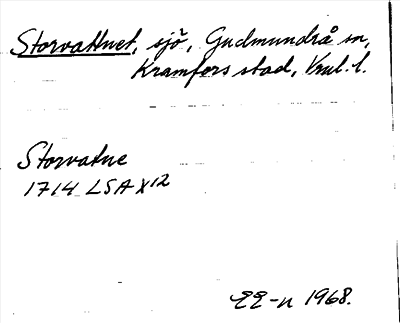 Storvattnet, sjö, Gudmundrå sn,
Kramfors stad, Vnl. l.
Storvatne
1714 LSA X12
EE-n 1968.